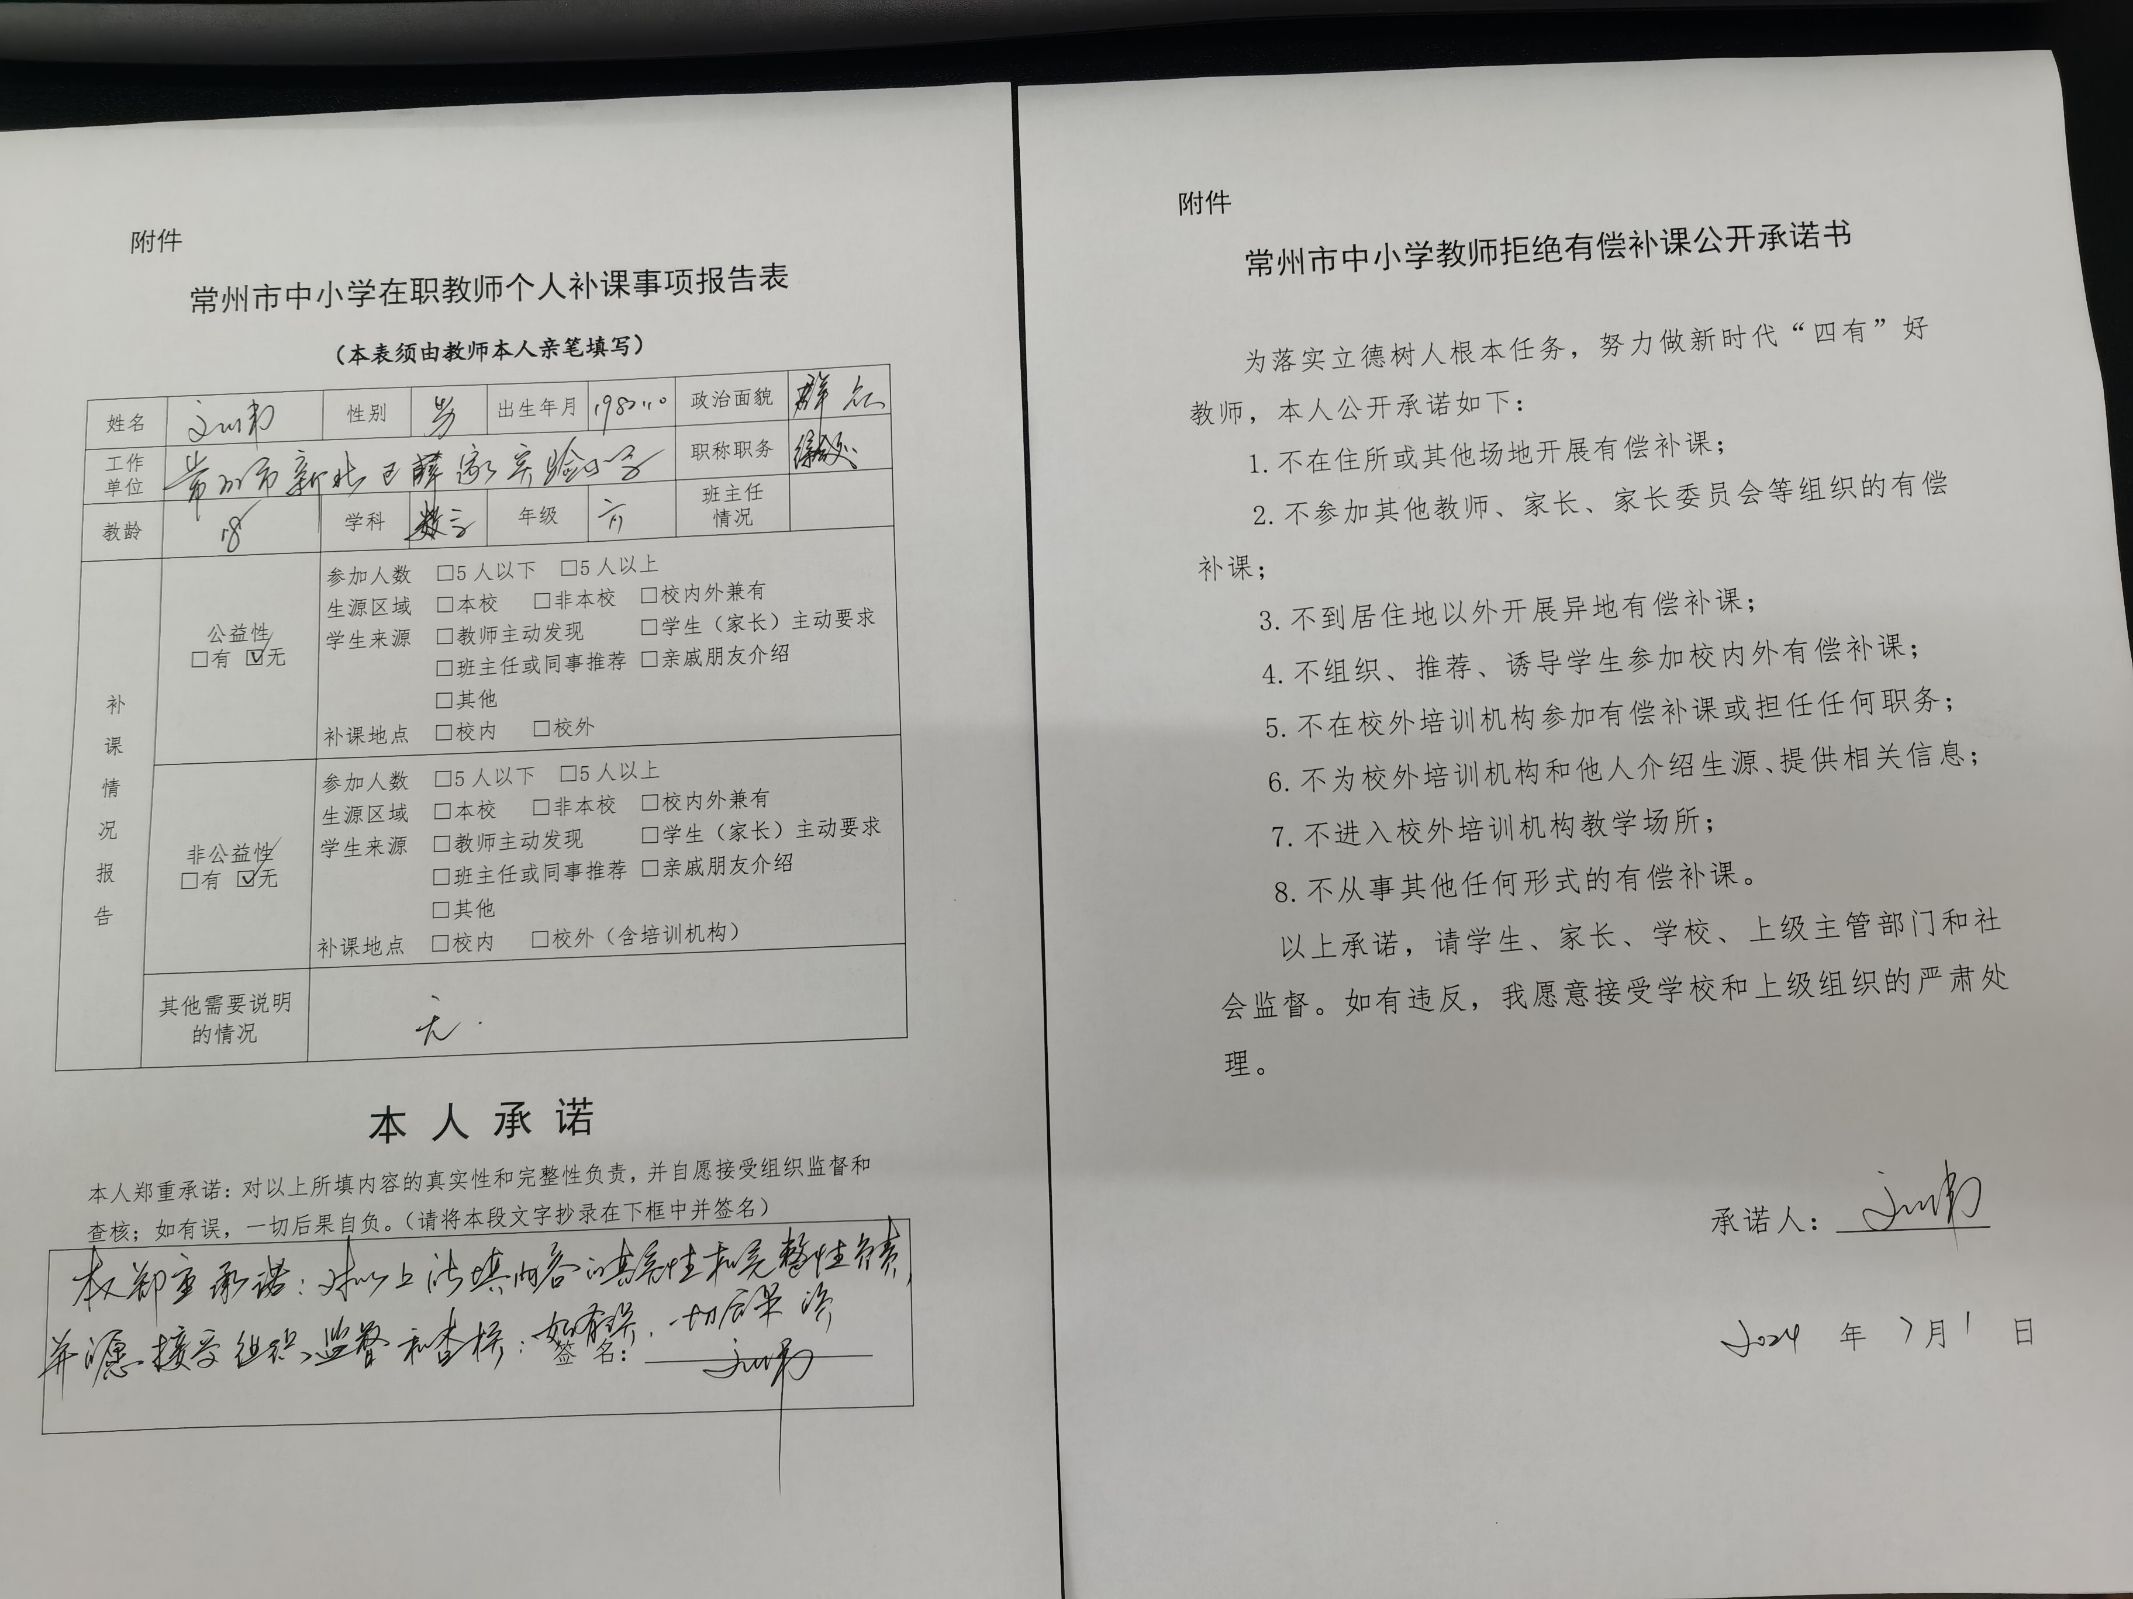 附件
常州市中小学在职教师个人补课事项报告表
（本表须由教师本人亲笔填写）
姓名 性别 男 出生年月 政治面貌 群众
工作单位 常州市新北区薛家实验小学 职称职务
教龄 18 学科 数学 年级 六 班主任情况
补课情况报告
公益性
□有 ☑无
参加人数 □5人以下 □5人以上
生源区域 □本校 □非本校 □校内外兼有
学生来源 □教师主动发现 □学生（家长）主动要求
□班主任或同事推荐 □亲戚朋友介绍
□其他
补课地点 □校内 □校外
非公益性
□有 ☑无
参加人数 □5人以下 □5人以上
生源区域 □本校 □非本校 □校内外兼有
学生来源 □教师主动发现 □学生（家长）主动要求
□班主任或同事推荐 □亲戚朋友介绍
□其他
补课地点 □校内 □校外（含培训机构）
其他需要说明的情况 无.
本人承诺
本人郑重承诺：对以上所填内容的真实性和完整性负责，并自愿接受组织监督和
查核；如有误，一切后果自负。（请将本段文字抄录在下框中并签名）
本人郑重承诺：对以上所填内容的真实性和完整性负责，
并自愿接受组织监督和查核；如有误，一切后果自负
签名：
附件
常州市中小学教师拒绝有偿补课公开承诺书
为落实立德树人根本任务，努力做新时代“四有”好
教师，本人公开承诺如下：
1.不在住所或其他场地开展有偿补课；
2.不参加其他教师、家长、家长委员会等组织的有偿
补课；
3.不到居住地以外开展异地有偿补课；
4.不组织、推荐、诱导学生参加校内外有偿补课；
5.不在校外培训机构参加有偿补课或担任任何职务；
6.不为校外培训机构和他人介绍生源、提供相关信息；
7.不进入校外培训机构教学场所；
8.不从事其他任何形式的有偿补课。
以上承诺，请学生、家长、学校、上级主管部门和社
会监督。如有违反，我愿意接受学校和上级组织的严肃处
理。
承诺人：
2024 年 7月1 日